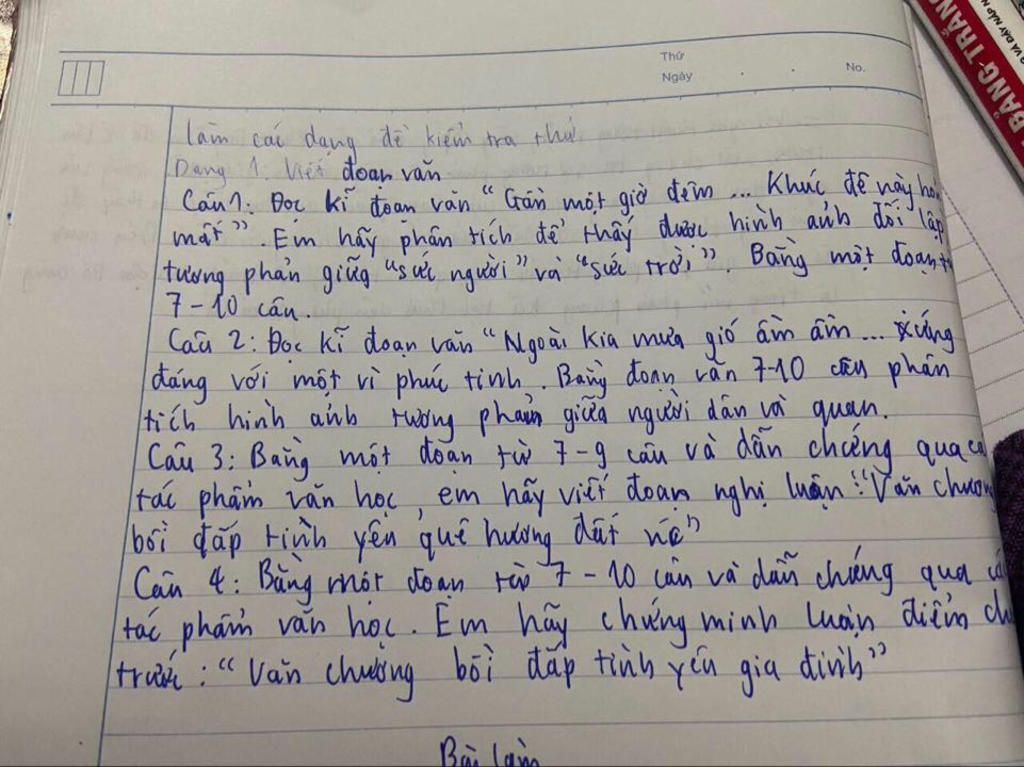 BẢNG TRẮNG
VÀ ĐẦY NẮP
Thứ
Ngày
No.
Làm các dạng đề kiểm tra thử
Dạng 1: Viết đoạn văn
Câu 1: Đọc kĩ đoạn văn “Gần một giờ đêm ... Khúc đê này
mất”. Em hãy phân tích để thấy được hình ảnh đối lập
tương phản giữa “sức người” và “sức trời”. Bằng một đoạn
7 - 10 câu.
Câu 2: Đọc kĩ đoạn văn “Ngoài kia mưa gió ầm ầm ... xứng
đáng với một vì phúc tinh. Bằng đoạn văn 7-10 câu phân
tích hình ảnh tương phản giữa người dân và quan.
Câu 3: Bằng một đoạn từ 7 - 9 câu và dẫn chứng qua
tác phẩm văn học, em hãy viết đoạn nghị luận: “Văn chương
bồi đắp tình yêu quê hương đất nc”
Câu 4: Bằng một đoạn từ 7 - 10 câu và dẫn chứng qua
tác phẩm văn học. Em hãy chứng minh luận điểm
trước: “Văn chương bồi đắp tình yêu gia đình”
Bài làm